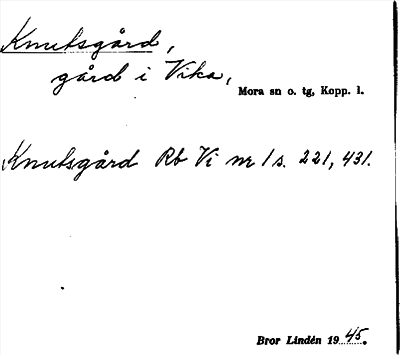 Knutsgård,
gård i Vika,
Mora sn o. tg, Kopp. l.
Knutsgård Rb Vi nr 1 s. 221, 431.
Bror Lindén 1945.